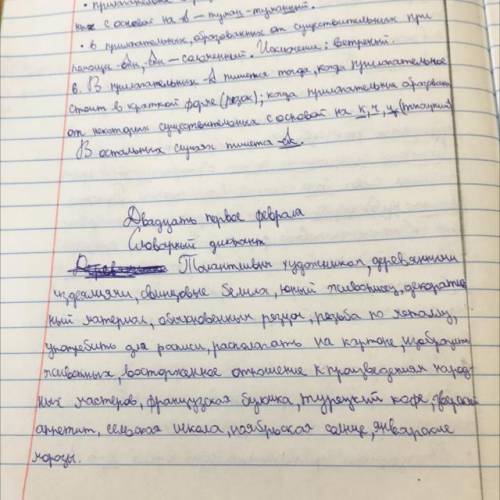 • прилагательн
ных с основой на н – туман – туманный.
• в прилагательных, образованных от существительных при
помощи -онн, -енн – соломенный. Исключения: ветреный.
в. В прилагательных -к пишется тогда, когда прилагательное
стоит в краткой форме (резок); когда прилагательные образован
от некоторых существительных с основой на к, ч, ц (ткацкий)
В остальных случаях пишется -ск.
Двадцать первое февраля
Словарный диктант
Талантливых художников, деревянными
изделиями, свинцовые белила, юный живописец, декоратив
ный материал, обыкновенных резцов, резьба по металлу,
употребить для росписи, располагать на картоне, изобразить
животных, восторженное отношение к произведениям народ
ных мастеров, французская булочка, турецкий кофе, зверский
аппетит, сельская школа, ноябрьское солнце, январские
морозы.